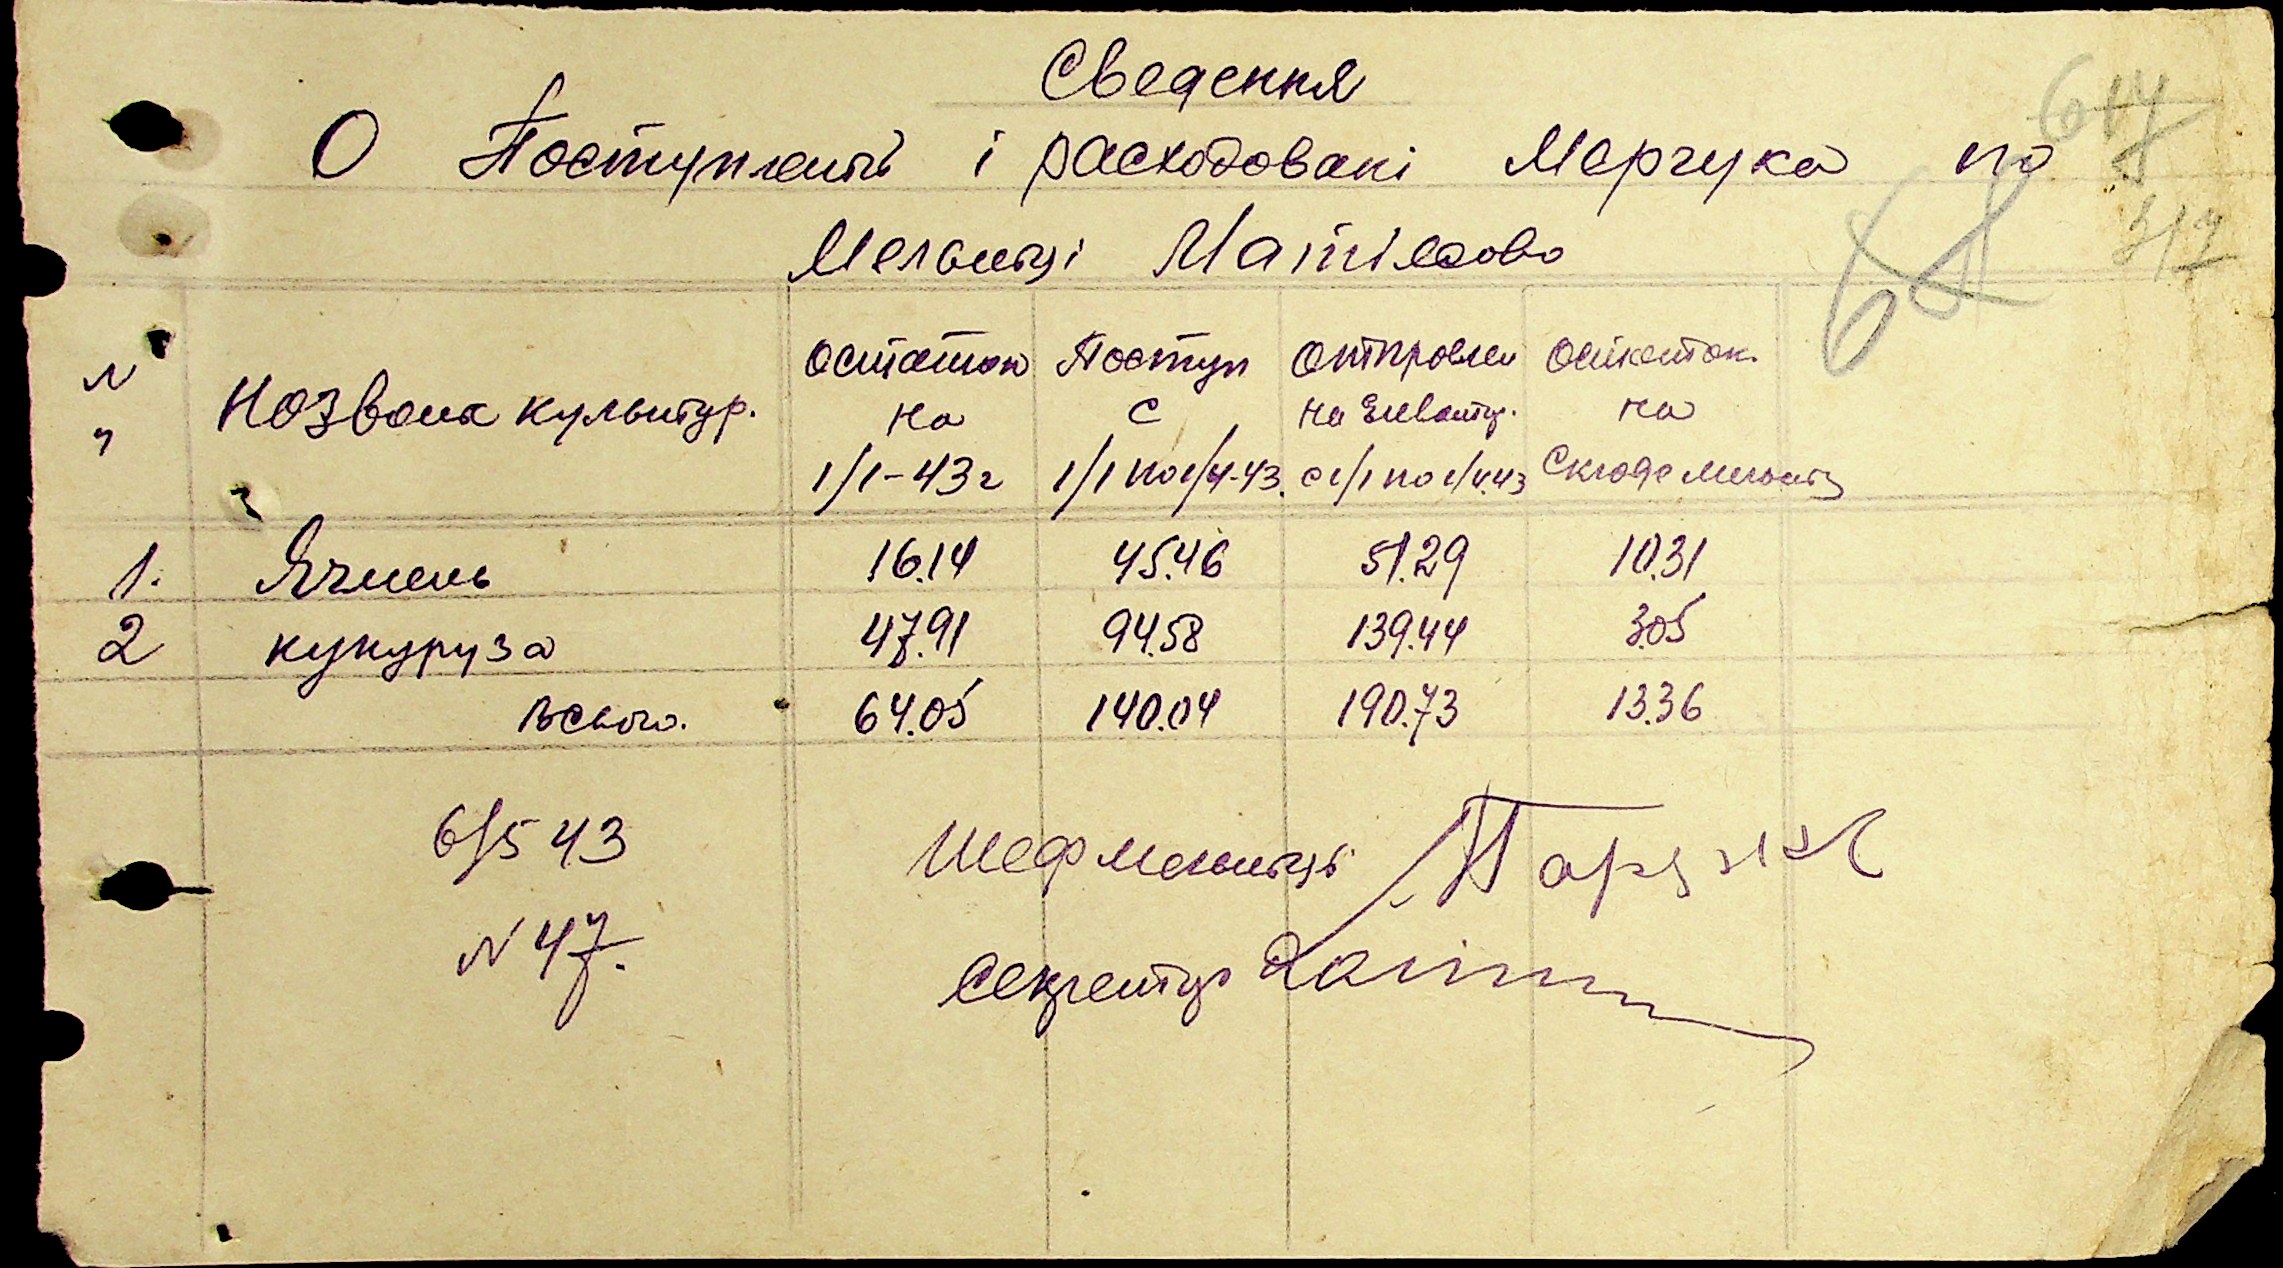 Сведення
О Поступлені і расходовані Мерчука по
Мельниці Матіясово
617
317
61
№ Названя культур. Остаток на 1/1-43 г Поступ с 1/1 по 1/4-43. Отправлен на Елеватор. с 1/1 по 1/4.43 Остаток на Складе мельниц
1. Ячмень 16.14 45.46 51.29 10.31
2 кукуруза 47.91 94.58 139.44 3.05
Всього. 64.05 140.04 190.73 13.36
6/5 43 Шеф мельниці
N 47. Секретар